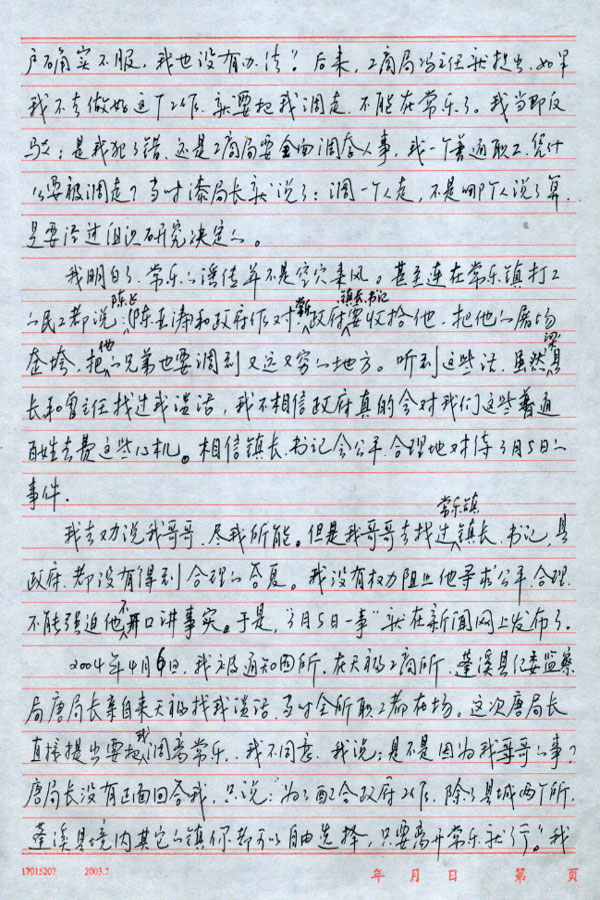 户确实不服，我也没有办法”。后来，工商局冯主任就提出，如果
我不去做好这个工作，就要把我调走，不能在常乐了。我当即反
驳：是我犯了错，还是工商局要全面调查人事，我一个普通职工，凭什
么要被调走？当时漆局长就说了：调一个人走，不是哪个人说了算，
是要经过组织研究决定的。
我明白了，常乐的谣传并不是空穴来风。甚至连在常乐镇打工
的民工都说：陈长(陈玉涛和政府作对，常乐政府镇长、书记要收拾他，把他的房均
查垮，把他的兄弟也要调到又远又穷的地方。听到这些话，虽然梁县
长和曾主任找过我谈话，我不相信政府真的会对我们这些普通
百姓去费这些心机。相信镇长、书记会公平、合理地对待3月5日的
事件．
我去劝说我哥哥，尽我所能。但是我哥哥去找过常乐镇镇长、书记，县
政府，都没有得到合理的答复。我没有权力阻止他寻求公平、合理，
不能强迫他不开口讲事实。于是，“3月5日一事”就在新闻网上发布了．
2004年4月6日，我被通知回所，在天福工商所，蓬溪县纪委监察
局唐局长亲自来天福找我谈话，当时全所职工都在场。这次唐局长
直接提出要把我调离常乐，我不同意，我说：是不是因为我哥哥的事？
唐局长没有正面回答我，只说：“为了配合政府工作，除了县城两个所，
蓬溪县境内其它的镇你都可以自由选择，只要离开常乐就行”。我
17015207 2003.7 年 月 日 第 页